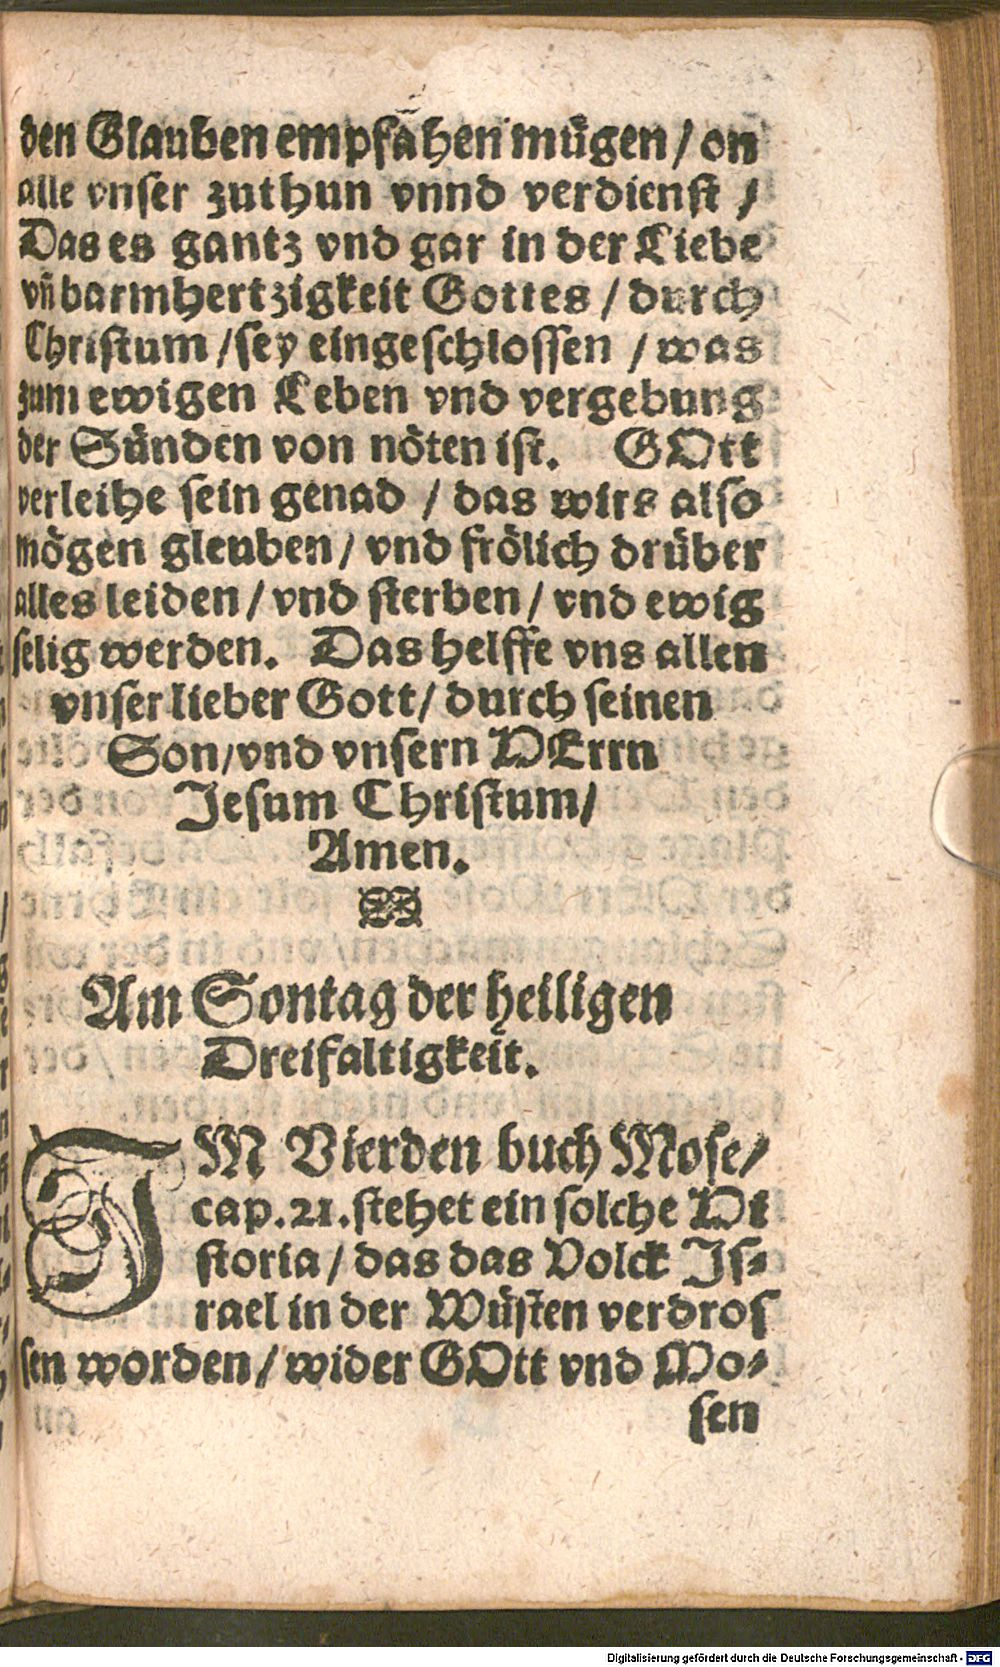 den Glauben empfähen mügen / on
alle vnser zuthun vnnd verdienst /
Das es gantz vnd gar in der Liebe
vñ barmhertzigkeit Gottes / durch
Christum / sey eingeschlossen / was
zum ewigen Leben vnd vergebung
der Sünden von nöten ist. GOtt
verleihe sein genad / das wirs also
mögen gleuben / vnd frölich drüber
alles leiden / vnd sterben / vnd ewig
selig werden. Das helffe vns allen
vnser lieber Gott / durch seinen
Son / vnd vnsern HErrn
Jesum Christum /
Amen.
Am Sontag der heiligen
Dreifaltigkeit.
IM Vierden buch Mose /
cap. 21. stehet ein solche Hi
storia / das das Volck Js-
rael in der Wüsten verdros
sen worden / wider GOtt vnd Mo-
sen
Digitalisierung gefördert durch die Deutsche Forschungsgemeinschaft - DFG